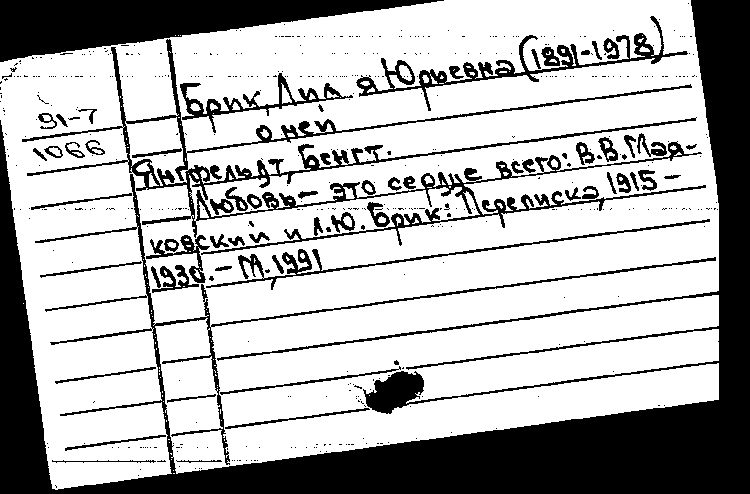 Брик, Лиля Юрьевна (1891-1978)
91-7
о ней
1066
Янгфельдт, Бенгт.
Любовь — это сердце всего: В.В. Мая-
ковский и Л.Ю. Брик: Переписка, 1915 –
1930. – М., 1991